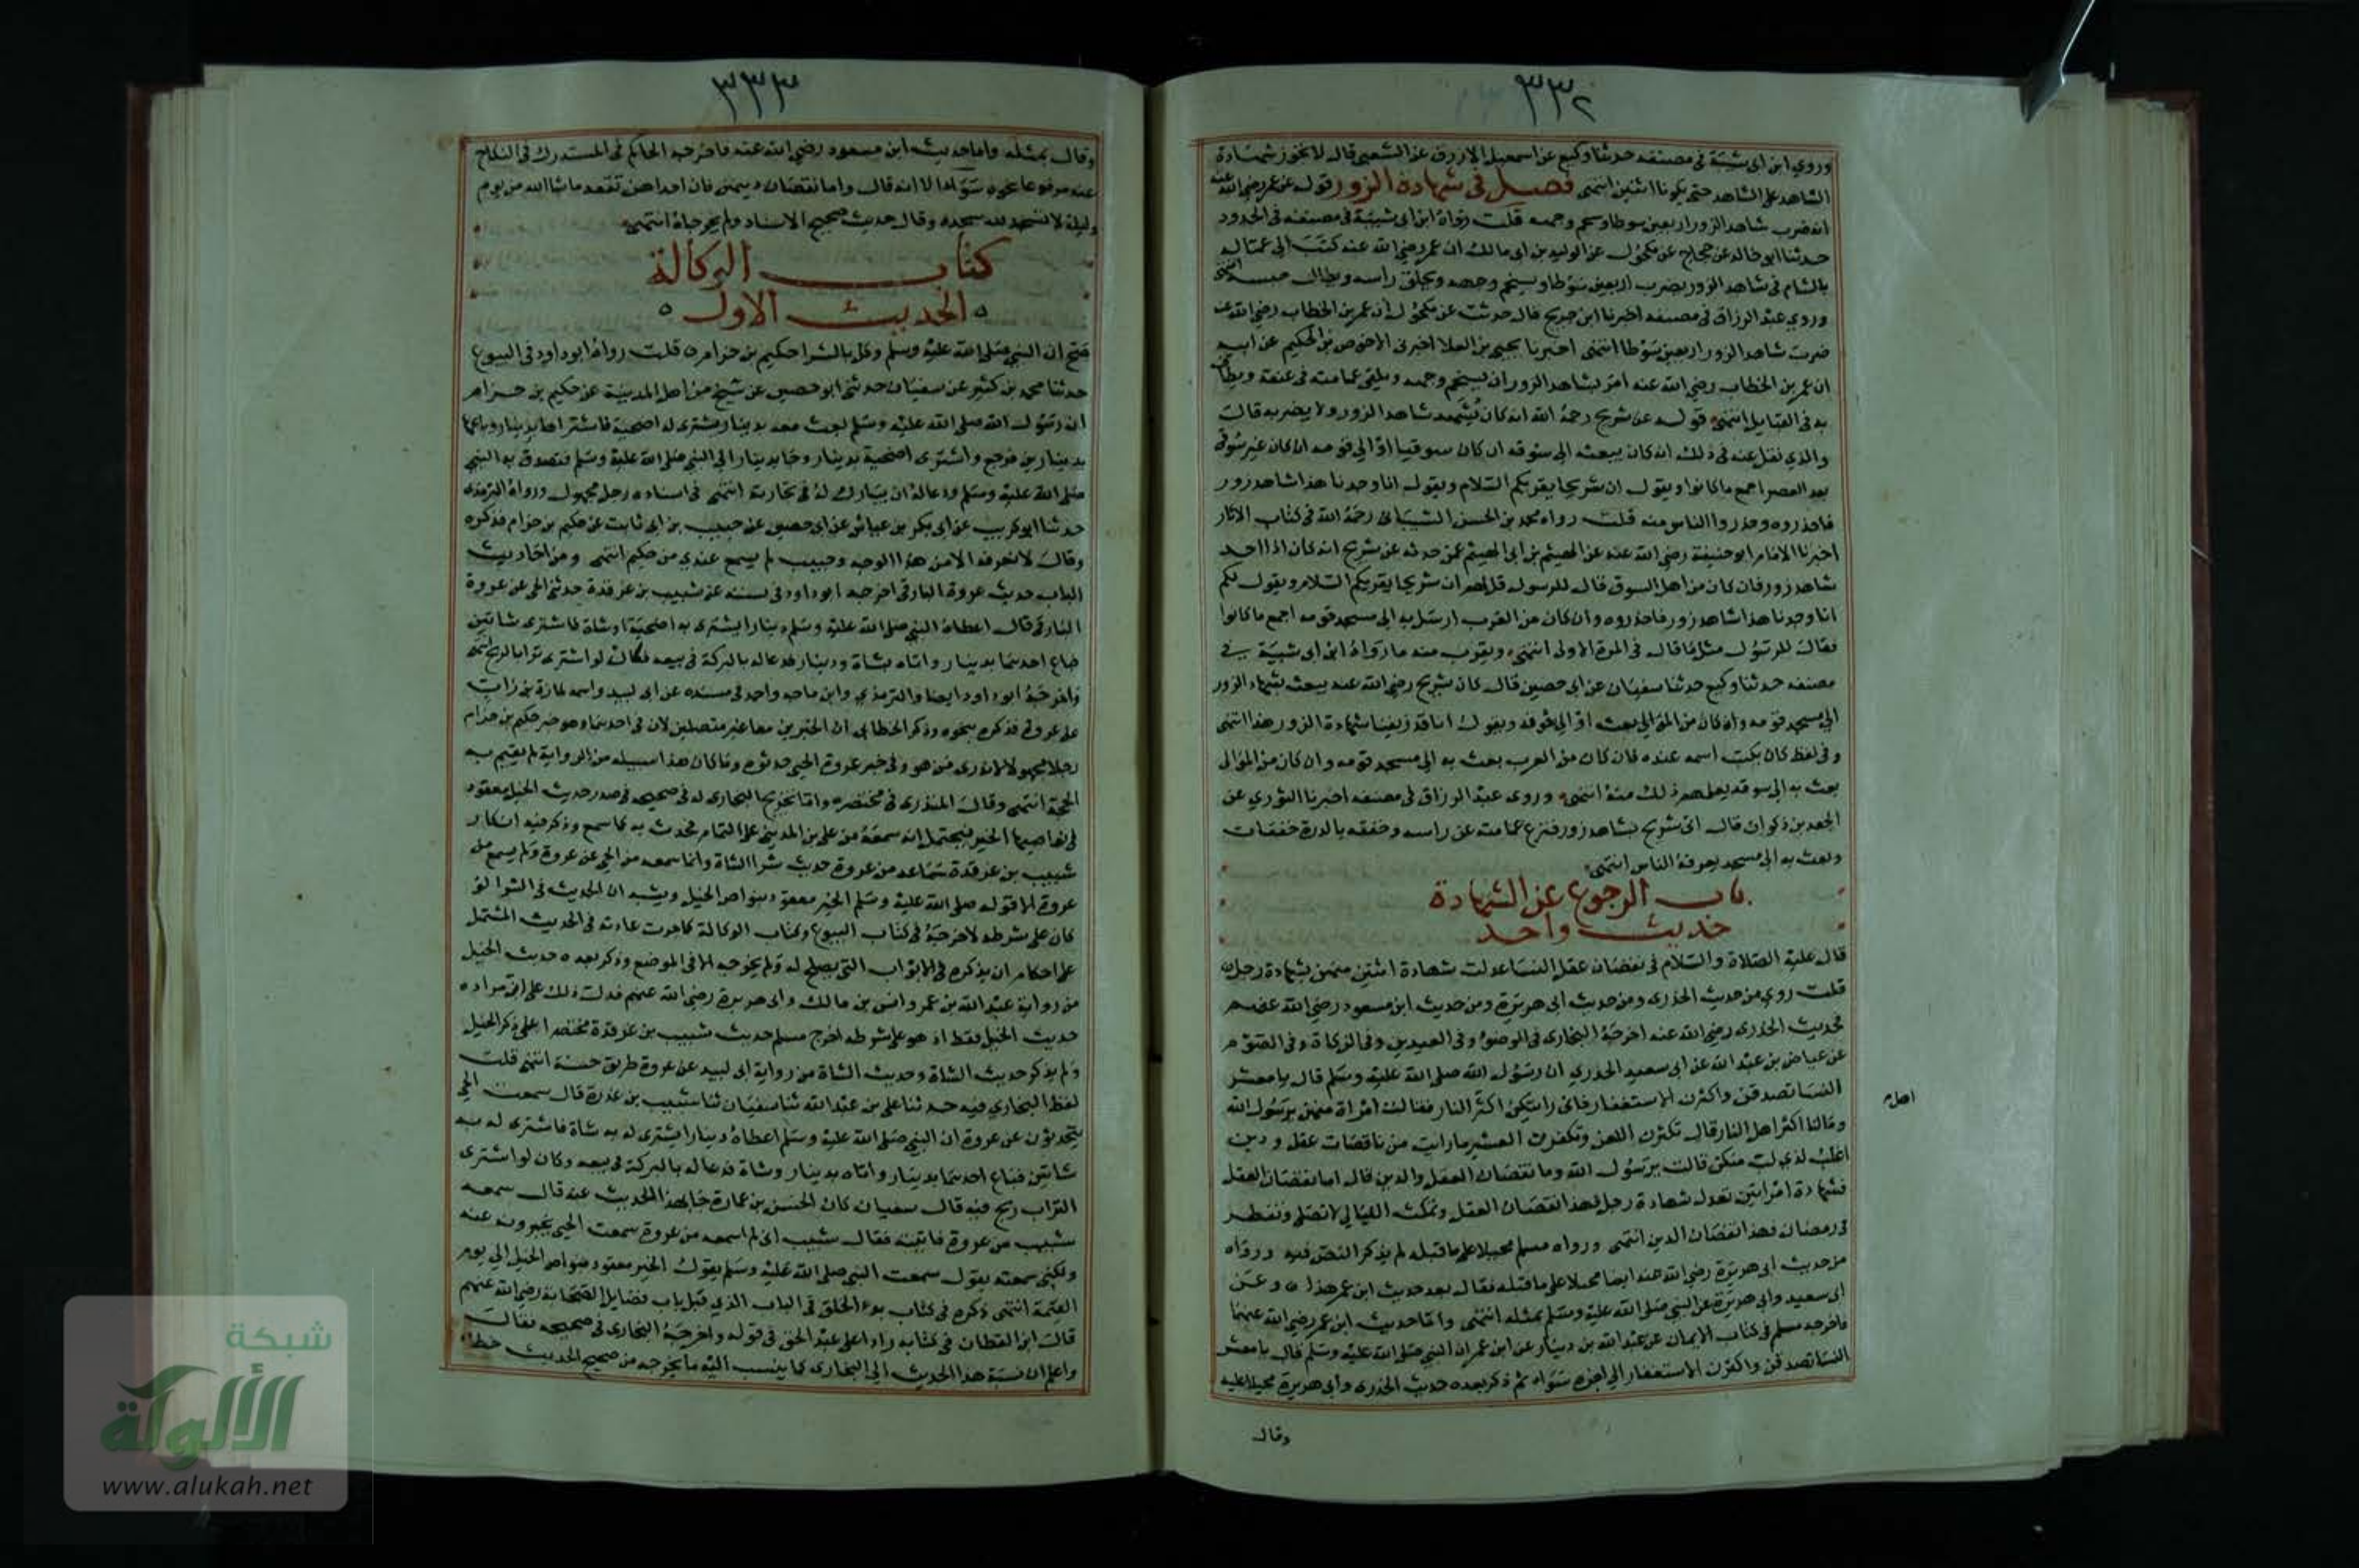 ٣٣٢
وروي ابن ابي شيبة في مصنفه حدثنا وكيع عن اسمعيل الازرق عن الشعبي قال لا تجوز شهادة
الشاهد على الشاهد حتى يكونا اثنين انتهى فصل في شهادة الزور قوله عن عمر رضي الله عنه
انه ضرب شاهد الزور اربعين سوطا وسخم وجهه قلت رواه ابن ابي شيبة في مصنفه في الحدود
حدثنا ابو خالد عن حجاج عن مكحول عن الوليد بن ابي مالك ان عمر رضي الله عنه كتب الى عماله
بالشام في شاهد الزور يضرب اربعين سوطا ويسخم وجهه ويحلق راسه ويطال حبسه انتهى
وروي عبد الرزاق في مصنفه اخبرنا ابن جريج قال حدثت عن مكحول ان عمر بن الخطاب رضي الله عنه
ضرب شاهد الزور اربعين سوطا انتهى اخبرنا يحيى بن العلا اخبرني الاحوص بن الحكيم عن ابيه
ان عمر بن الخطاب رضي الله عنه امر بشاهد الزور ان يسخم وجهه ويلقى عمامته في عنقه ويطاف
به في القبايل انتهى قوله عن شريح رحمه الله انه كان يشهد شاهد الزور ولا يضربه قالت
والذي نقل عنه في ذلك انه كان يبعثه الى سوقه ان كان سوقيا او الي قومه ان كان غير سوقي
بعد العصر اجمع ما كانوا ويقول ان شريحا يقريكم السلام ويقول انا وجدنا هذا شاهد زور
فاحذروه وحذروا الناس منه قلت رواه محمد بن الحسن الشيباني رحمه الله في كتاب الاثار
اخبرنا الامام ابو حنيفة رضي الله عنه عن الهيثم بن ابي الهيثم عمن حدثه عن شريح انه كان اذا اخد
شاهد زور فان كان من اهل السوق قال للرسول قل لهم ان شريحا يقريكم السلام ويقول لكم
انا وجدنا هذا شاهد زور فاحذروه وان كان من العرب ارسل به الى مسجد قومه اجمع ما كانوا
فقال للرسول مثل ما قال في المرة الاولى انتهى ويقرب منه ما رواه ابن ابي شيبة في
مصنفه حدثنا وكيع حدثنا سفيان عن ابي حصين قال كان شريح رضي الله عنه يبعث بشاهد الزور
الي مسجد قومه وان كان من الموالي بعث او الي سوقه ويقول انا قد زيفنا شهادة الزور هذا انتهى
وفي لفظ كان يكتب اسمه عنده فان كان من العرب بعث به الى مسجد قومه وان كان من الموالي
بعث به الى سوقه يعلمهم ذلك منه انتهى وروى عبد الرزاق في مصنفه اخبرنا الثوري عن
الجعد بن ذكوان قال اتى شريح بشاهد زور فنزع عمامته عن راسه وخفقه بالدرة خفقات
وبعث به الى مسجد يعرفه الناس انتهى
باب الرجوع عن الشهادة
حديث واحد
قال عليه الصلاة والسلام في نقصان عقل النسا عدلت شهادة اثنتين منهن بشهادة رجل
قلت روي من حديث الخدري ومن حديث ابي هريرة ومن حديث ابن مسعود رضي الله عنهم
فحديث الخدري رضي الله عنه اخرجه البخاري في الوضوء وفي العيدين وفي الزكاة وفي الصوم
عن عياض بن عبد الله عن ابي سعيد الخدري ان رسول الله صلى الله عليه وسلم قال يا معشر
النسا تصدقن واكثرن الاستغفار فاني رايتكن اكثر النار فقالت امراة منهن يرسول الله
ومالنا اكثر اهل النار قال تكثرن اللعن وتكفرن العشير ما رايت من ناقصات عقل ودين
اغلب لذي لب منكن قالت يرسول الله وما نقصان العقل والدين قال اما نقصان العقل
فشهادة امراتين تعدل شهادة رجل فهذا نقصان العقل وتمكث الليالي لا تصلي وتفطر
في رمضان فهذا نقصان الدين انتهى ورواه مسلم محيلا على ما قبله لم يذكر النقص فيه ورواه
من حديث ابي هريرة رضي الله عنه ايضا محيلا على ما قبله فقال بعد حديث ابن عمر هذا وعن
ابي سعيد وابي هريرة عن النبي صلى الله عليه وسلم بمثله انتهى واما حديث ابن عمر رضي الله عنهما
فاخرجه مسلم في كتاب الايمان عن عبد الله بن دينار عن ابن عمر ان النبي صلى الله عليه وسلم قال يا معشر
النسا تصدقن واكثرن الاستغفار الى اخره سواء ثم ذكر بعده حديث الخدري وابي هريرة محيلا عليه
وقال
اصل
٣٣٣
وقال بمثله واما حديث ابن مسعود رضي الله عنه فاخرجه الحاكم في المستدرك في النكاح
عنه مرفوعا نحوه سواء الا انه قال واما نقصان دينهن فان احداهن تقعد ما شا الله من يوم
وليلة لا تسجد لله سجدة وقال حديث صحيح الاسناد ولم يخرجاه انتهى
كتاب الوكالة
الحديث الاول
صح ان النبي صلى الله عليه وسلم وكل بالشرا حكيم بن حزام قلت رواه ابو داود في البيوع
حدثنا محمد بن كثير عن سفيان حدثني ابو حصين عن شيخ من اهل المدينة عن حكيم بن حزام
ان رسول الله صلى الله عليه وسلم بعث معه بدينار يشتري له اضحية فاشتراها بدينار وباعها
بدينارين فرجع واشترى اضحية بدينار وجا بدينار الي النبي صلى الله عليه وسلم فتصدق به النبي
صلى الله عليه وسلم ودعا له ان يبارك له في تجارته انتهى في اسناده رجل مجهول ورواه الترمذي
حدثنا ابو كريب عن ابي بكر بن عياش عن ابي حصين عن حبيب بن ابي ثابت عن حكيم بن حزام فذكره
وقال لا نعرفه الا من هذا الوجه وحبيب لم يسمع عندي من حكيم انتهى ومن احاديث
الباب حديث عروة البارقي اخرجه ابو داود في سننه عن شبيب بن غرقدة حدثني الحي عن عروة
البارقي قال اعطاه النبي صلى الله عليه وسلم دينارا يشتري به اضحية او شاة فاشترى شاتين
فباع احديهما بدينار واتاه بشاة ودينار فدعا له بالبركة في بيعه فكان لو اشترى ترابا لربح انتهى
واخرجه ابو داود ايضا والترمذي وابن ماجه واحمد في مسنده عن ابي لبيد واسمه لمازة بن زبار
عن عروة فذكره بنحوه وذكر الخطابي ان الخبرين معا غير متصلين لان في احدهما وهو خبر حكيم بن حزام
رجلا مجهولا لا يدرى من هو وفي خبر عروة الحي حدثوه وما كان هذا سبيله من الرواية لم تقم به
الحجة انتهى وقال المنذري في مختصره واما تخريج البخاري له في صحيحه في صدر حديث الخيل معقود
في نواصيها الخير فيحتمل انه سمعه من علي بن المديني على التمام فحدث به كما سمع وذكر فيه انكار
شبيب بن غرقدة سماعه من عروة حديث شرا الشاة وانما سمعه من الحي عن عروة ولم يسمع من
عروة الا قوله صلى الله عليه وسلم الخير معقود بنواصي الخيل ويشبه ان الحديث في الشرا لو
كان على شرطه لاخرجه في كتاب البيوع وكتاب الوكالة كما جرت عادته في الحديث المشتمل
على احكام ان يذكره في الابواب التي يصلح له ولم يخرجه الا في الموضع وذكر بعده حديث الخيل
من رواية عبد الله بن عمر وانس بن مالك وابي هريرة رضي الله عنهم فدل ذلك على ان مراده
حديث الخيل فقط اذ هو على شرطه اخرج مسلم حديث شبيب بن غرقدة مختصرا على ذكر الخيل
ولم يذكر حديث الشاة وحديث الشاة من رواية ابي لبيد عن عروة طريق حسنة انتهى قلت
لفظ البخاري فيه حدثنا علي بن عبد الله ثنا سفيان ثنا شبيب بن غرقدة قال سمعت الحي
يتحدثون عن عروة ان النبي صلى الله عليه وسلم اعطاه دينارا يشتري له به شاة فاشترى له به
شاتين فباع احديهما بدينار واتاه بدينار وشاة فدعا له بالبركة في بيعه وكان لو اشترى
التراب ربح فيه قال سفيان كان الحسن بن عمارة جا بهذا الحديث عنه قال سمعه
شبيب من عروة فاتيته فقال شبيب اني لم اسمعه من عروة سمعت الحي يخبرونه عنه
ولكني سمعته يقول سمعت النبي صلى الله عليه وسلم يقول الخير معقود بنواصي الخيل الي يوم
القيمة انتهى ذكره في كتاب بدء الخلق في الباب الذي قبل باب فضايل الصحابة رضي الله عنهم
قال ابن القطان في كتابه رادا على عبد الحق في قوله واخرجه البخاري في صحيحه فقال
واعلم ان نسبة هذا الحديث الي البخاري كما ينسب اليه ما يخرجه من صحيح الحديث خطا
شبكة
الألوكة
www.alukah.net